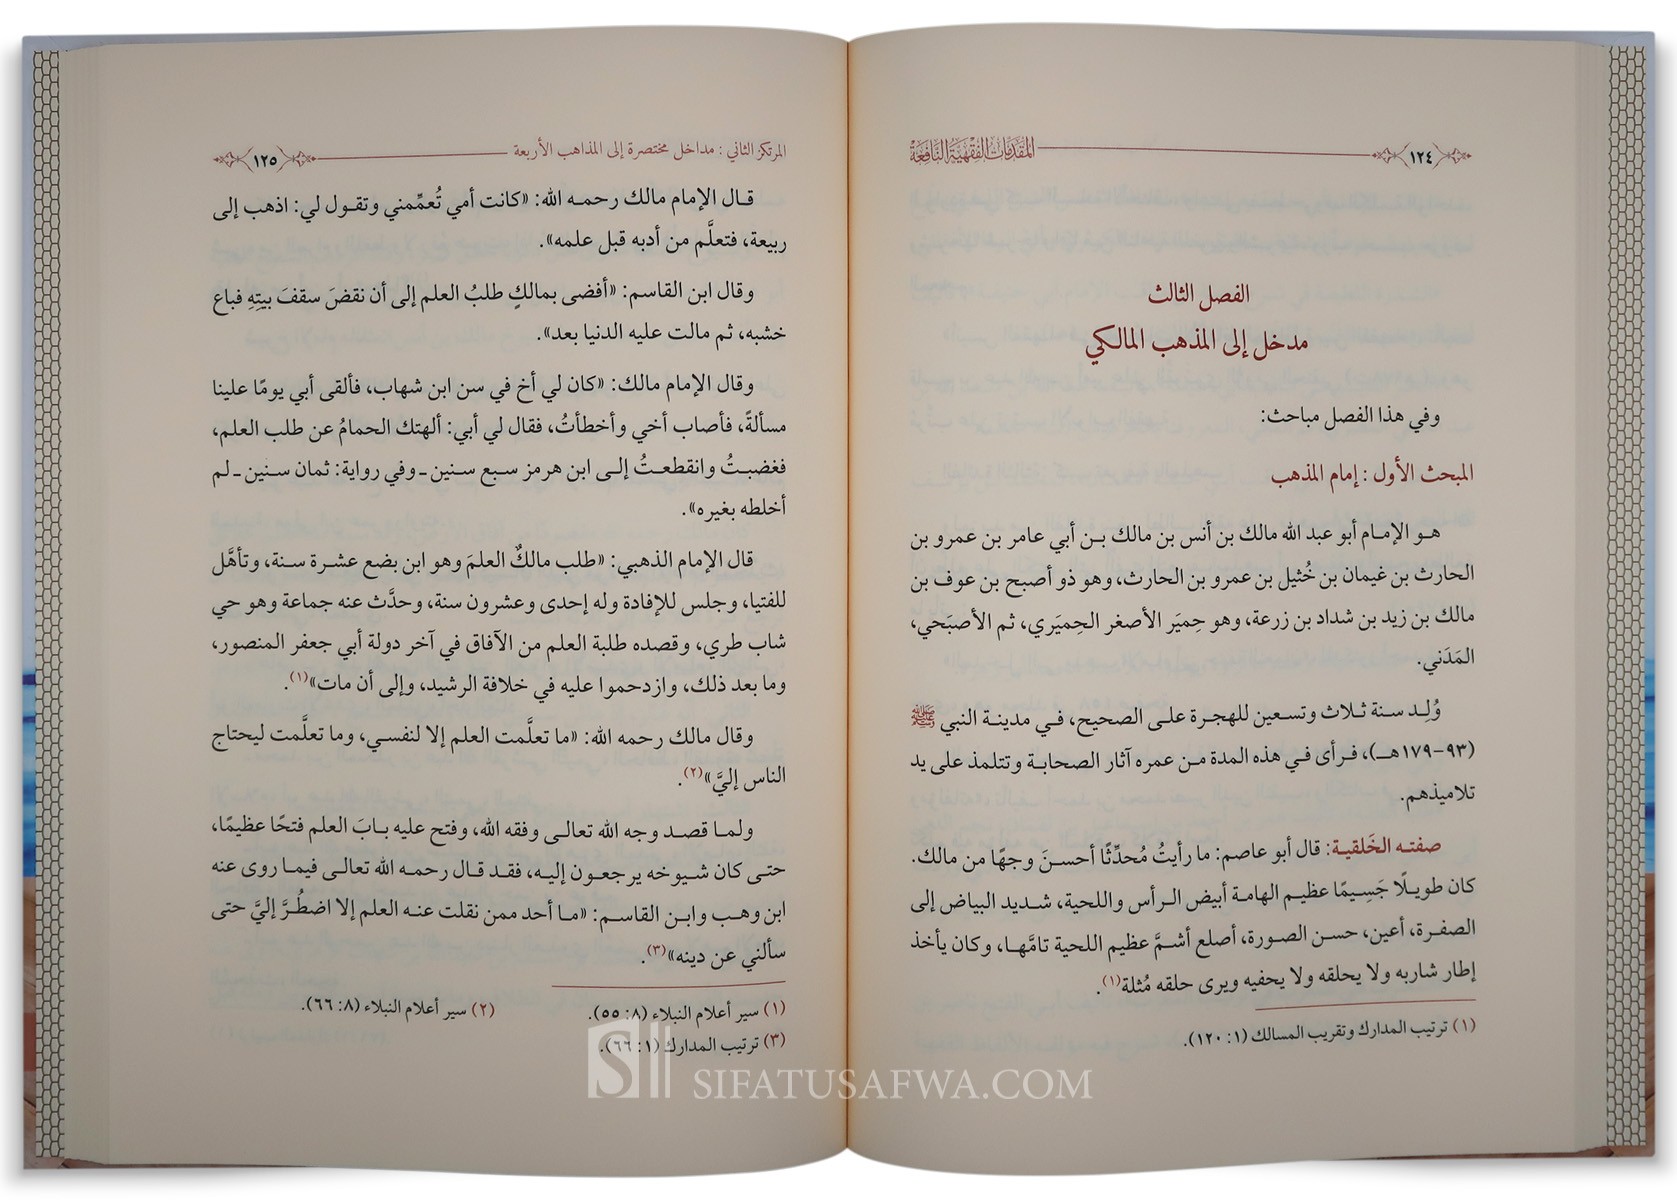 المقدمات الفقهية النافعة
١٢٤
الفصل الثالث
مدخل إلى المذهب المالكي
وفي هذا الفصل مباحث:
المبحث الأول : إمام المذهب
هـو الإمـام أبو عبد الله مالك بن أنس بن مالك بـن أبي عامر بن عمرو بن
الحارث بن غيمان بن خُثيل بن عمرو بن الحارث، وهو ذو أصبح بن عوف بن
مالك بن زيد بن شداد بن زرعة، وهو حِميَر الأصغر الحِميَري، ثم الأصبَحي،
المَدَني.
وُلِـد سنة ثـلاث وتسـعين للهجـرة علـى الصحيح، فـي مدينـة النبي ﷺ
(٩٣-١٧٩هـ)، فـرأى فـي هذه المدة مـن عمره آثار الصحابـة وتتلمذ علـى يد
تلاميذهم.
صفتـه الخَلقيـة: قال أبو عاصم: ما رأيتُ مُحدِّثًا أحسـنَ وجهًا من مالك.
كان طويـلًا جَسِـيمًا عظيـم الهامـة أبيض الـرأس واللحية، شـديد البياض إلى
الصفـرة، أعين، حسـن الصورة، أصلع أشـمَّ عظيم اللحية تامَّهـا، وكان يأخذ
إطار شاربه ولا يحلقه ولا يحفيه ويرى حلقه مُثلة(١).
(١) ترتيب المدارك وتقريب المسالك (١: ١٢٠).
المرتكز الثاني : مداخل مختصرة إلى المذاهب الأربعة
١٢٥
قـال الإمـام مالـك رحمـه الله: «كانـت أمي تُعمِّمني وتقـول لي: اذهب إلى
ربيعة، فتعلَّم من أدبه قبل علمه».
وقال ابن القاسم: «أفضى بمالكٍ طلبُ العلم إلى أن نقضَ سقفَ بيتِهِ فباع
خشبه، ثم مالت عليه الدنيا بعد».
وقال الإمام مالك: «كان لي أخ في سن ابن شهاب، فألقى أبي يومًا علينا
مسـألةً، فـأصاب أخي وأخطأتُ، فقال لي أبي: ألهتك الحمامُ عن طلب العلم،
فغضبـتُ وانقطعـتُ إلـى ابن هرمز سـبع سـنين ـ وفي رواية: ثمان سنين ـ لم
أخلطه بغيره».
قال الإمام الذهبي: «طلب مالكٌ العلمَ وهو ابن بضع عشـرة سـنة، وتأهَّل
للفتيا، وجلس للإفادة وله إحدى وعشرون سنة، وحدَّث عنه جماعة وهو حي
شاب طري، وقصده طلبة العلم من الآفاق في آخر دولة أبي جعفر المنصور،
وما بعد ذلك، وازدحموا عليه في خلافة الرشيد، وإلى أن مات»(١).
وقال مالك رحمه الله: «ما تعلَّمت العلم إلا لنفسـي، وما تعلَّمت ليحتاج
الناس إليَّ»(٢).
ولمـا قصـد وجه الله تعالـى وفقه الله، وفتح عليه بـابَ العلم فتحًا عظيمًا،
حتـى كان شـيوخه يرجعـون إليـه، فقـد قـال رحمـه الله تعالـى فيمـا روى عنه
ابن وهـب وابـن القاسـم: «مـا أحد ممن نقلت عنـه العلم إلا اضطُـرَّ إليَّ حتى
سألني عن دينه»(٣).
(١) سير أعلام النبلاء (٨: ٥٥).
(٢) سير أعلام النبلاء (٨: ٦٦).
(٣) ترتيب المدارك (١: ٦٦).
SIFATUSAFWA.COM